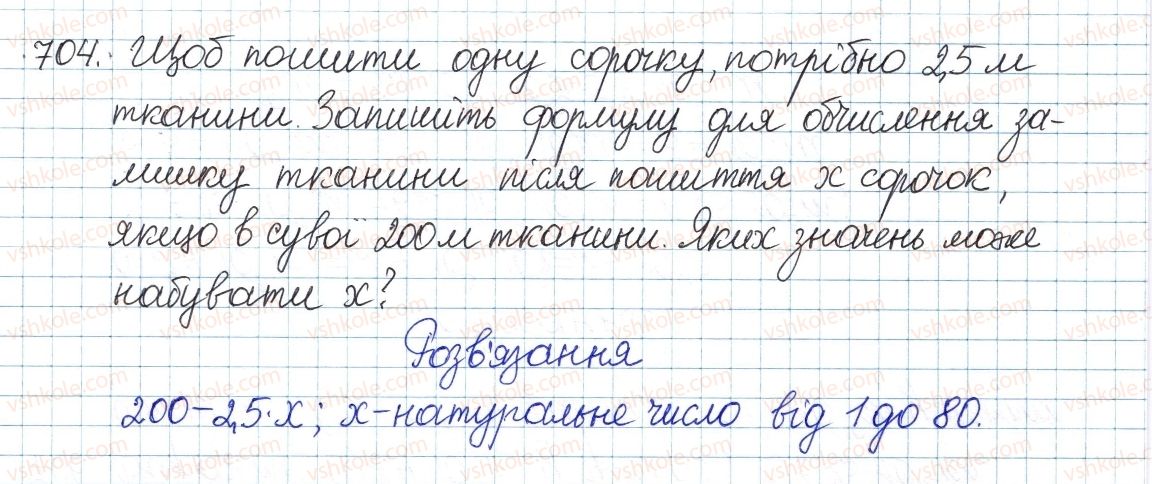 704. Щоб пошити одну сорочку, потрібно 2,5 м
тканини. Запишіть формулу для обчислення за-
лишку тканини після пошиття x сорочок,
якщо в сувої 200 м тканини. Яких значень може
набувати x?
Розв'язання
200-2,5·x; x-натуральне число від 1 до 80.